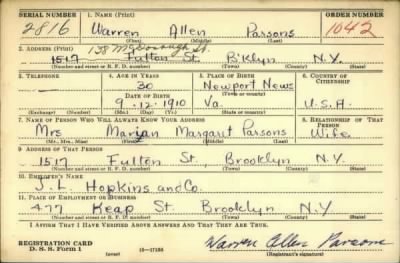 SERIAL NUMBER 1. NAME (Print) ORDER NUMBER
2816 Warren Allen Parsons 1042
(First) (Middle) (Last)
2. ADDRESS (Print) 138 McDonough St.
1517 Fulton St. B'klyn N.Y.
(Number and street or R. F. D. number) (Town) (County) (State)
3. TELEPHONE 4. AGE IN YEARS 5. PLACE OF BIRTH 6. COUNTRY OF CITIZENSHIP
30 Newport News
DATE OF BIRTH (Town or county)
9-12-1910 Va. U.S.A.
(Exchange) (Number) (Mo.) (Day) (Yr.) (State or country)
7. NAME OF PERSON WHO WILL ALWAYS KNOW YOUR ADDRESS 8. RELATIONSHIP OF THAT PERSON
Mrs Marian Margaret Parsons Wife
(Mr., Mrs., Miss) (First) (Middle) (Last)
9. ADDRESS OF THAT PERSON
1517 Fulton St, Brooklyn N.Y.
(Number and street or R. F. D. number) (Town) (County) (State)
10. EMPLOYER'S NAME
J. L. Hopkins and Co.
11. PLACE OF EMPLOYMENT OR BUSINESS
477 Keap St. Brooklyn N.Y
(Number and street or R. F. D. number) (Town) (County) (State)
I AFFIRM THAT I HAVE VERIFIED ABOVE ANSWERS AND THAT THEY ARE TRUE.
REGISTRATION CARD
D. S. S. Form 1 (over) 16—17105 Warren Allen Parsons
(Registrant's signature)